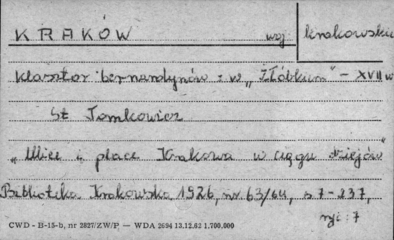 KRAKÓW woj. krakowskie
Klasztor bernardynów: w „Żłóbkum” – XVII w
St Tomkowicz
„Ulice i place Krakowa w ciągu dziejów”
Biblioteka Krakowska 1926, nr. 63/64, s 7-237,
ryc: 7
CWD - II-15-b, nr 2827/ZW/P — WDA 2694 13.12.62 1.700.000